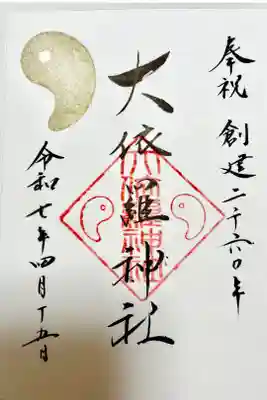 奉祝 創建二千六〇年
大依羅神社
令和七年四月十五日